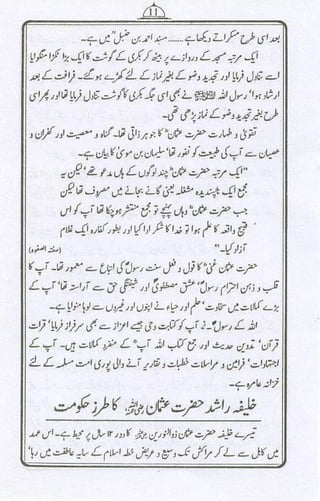 11
بعد اسی طرح مسکراتے دیکھا ہے ...... مسند احمد بن حنبلؒ میں ہے۔
ایک مرتبہ مسجد کے دروازے پر بیٹھ کر بکری کے گوشت کا ایک بڑا ٹکڑا منگوایا
اسے تناول فرمایا اور تجدید وضو کے بغیر نماز کے لئے کھڑے ہو گئے۔ فراغت کے بعد
ارشاد ہوا' رسول اللہ ﷺ نے بھی اسی جگہ بکری کا گوشت تناول فرمایا تھا اور پھر اسی
طرح بغیر تجدید وضو کے نماز پڑھی تھی۔
تقویٰ و طہارت حضرت عثمانؓ کا جوہر ذاتی تھا۔ گناہ و معصیت اور کفران و
عصیان سے آپ کی طبیعت کو نفور تھا' سلیمان بن موسیٰ کا بیان ہے۔
"ایک مرتبہ حضرت عثمانؓ چند لوگوں کے ہاں مدعو تھے' لیکن یہ
مجمع ایک ناپسندیدہ مشغلہ یعنی گانے بجانے میں مصروف تھا لیکن
جب حضرت عثمانؓ وہاں پہنچے تو مجمع منتشر ہو چکا تھا آپ کو اس
قبیح واقعہ کا علم ہوا تو خدا کا شکر ادا کیا اور بطور کفارہ ایک غلام
آزاد کیا۔"
حضرت عثمان غنیؓ کا قول و فعل سنت رسولؐ کی اتباع سے معمور تھا۔ آپ کا
قلب و ذہن احترام رسولؐ' عشق مصطفویؐ اور شیفتگی حق سے آراستہ تھا۔ آپ کے
بڑے کمالات میں سخاوت' حلم اور حیاء نے اپنوں اور غیروں سے لوہا منوایا ہے۔
اللہ کے رسولؐ نے آپ کو کتابت وحی جیسے اعزاز سے بھی سرفراز فرمایا' قرات
قرآن' تدوین حدیث اور جمع کتاب اللہ آپؓ کے منفرد کمالات ہیں۔ آپ کے
اجتہادات' فرامین و مراسلات خطبات و تقاریر آنے والی پوری امت مسلمہ کے لئے
خزانہ عامرہ ہے۔
خلیفہ راشد حضرت عثمان رضی اللہ عنہ کا طرز حکومت
تیسرے خلیفہ حضرت عثمان ذوالنورین کا دور ۱۲ سال پر محیط ہے۔ اس عہد
میں کابل سے لے کر مراکش تک وسیع و عریض خطہ اسلام کے سایہ عاطفت میں رہا'